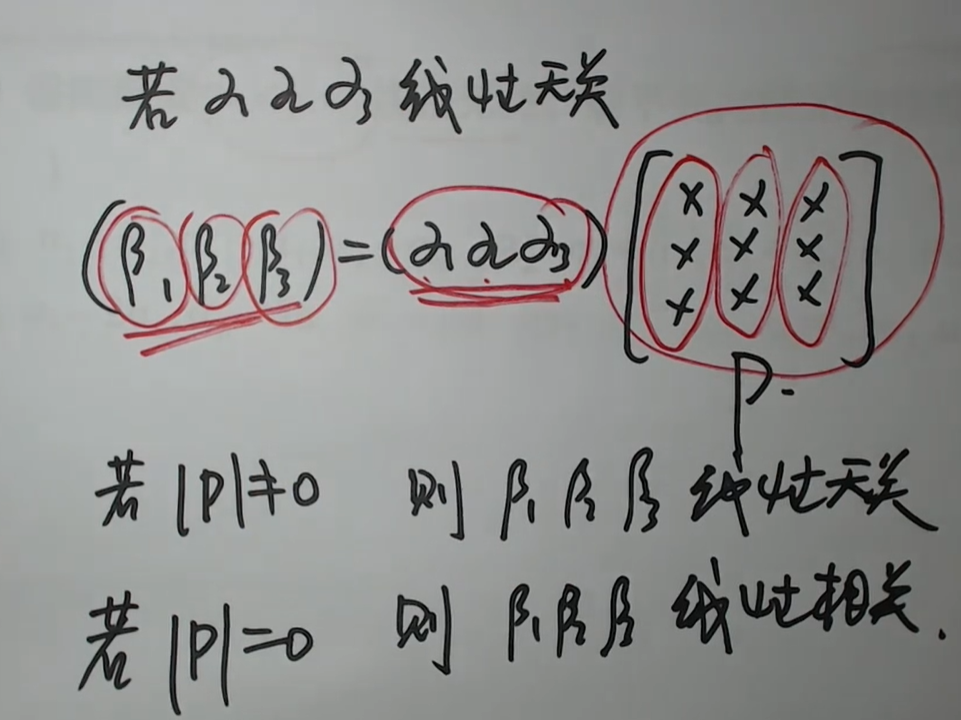 若 α₁ α₂ α₃ 线性无关
(β₁ β₂ β₃) = (α₁ α₂ α₃) [
x x x
x x x
x x x
]
P.
若 |P| ≠ 0 则 β₁ β₂ β₃ 线性无关
若 |P| = 0 则 β₁ β₂ β₃ 线性相关.